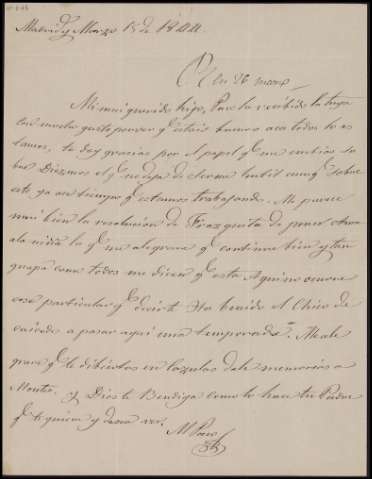 Madrid y Marzo 15 de 1844
Cn en 26 marzo
Mi mui querido hijo, Paco he recibido la tuya
con mucho gusto por ver qe estais buenos aca todos lo es
tamos, te doy gracias por el papel qe me embias so
bre Diezmos el qe no deja de serme util aunqe sobre
esto ya ace tiempo qe estamos trabajando. Me parece
mui bien la resolucion de Frazquita de poner ahora
a la niña lo qe me alegrare qe continue bien y tan
guapa como todos me dicen qe esta. Aqui no ocurre
cosa particular qe decirte. Ha benido el Chico de
a pasar aqui una temporada. Me ale
grare qe te dibiertas en dale memorias a
y Dios te Bendiga como lo hace tu Padre
qe te quiere y desea ver.
M Paco